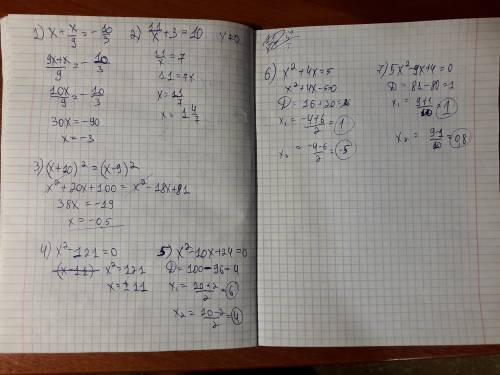 1) x + x/9 = -10/3
(9x+x)/9 = -10/3
10x/9 = -10/3
30x = -90
x = -3
2) 11/x + 3 = 10
x≠0
11/x = 7
11 = 7x
x = 11/7
x = 1 4/7
3) (x+10)² = (x-9)²
x² + 20x + 100 = x² - 18x + 81
38x = -19
x = -0.5
4) x² - 121 = 0
(x-11) x² = 121
x = ± 11
5) x² - 10x + 24 = 0
D = 100 - 96 = 4
x₁ = (10+2)/2 = 6
x₂ = (10-2)/2 = 4
6) x² + 4x = 5
x² + 4x - 5 = 0
D = 16 + 20 = 36
x₁ = (-4+6)/2 = 1
x₂ = (-4-6)/2 = -5
7) 5x² - 9x + 4 = 0
D = 81 - 80 = 1
x₁ = (9+1)/10 = 1
x₂ = (9-1)/10 = 0,8